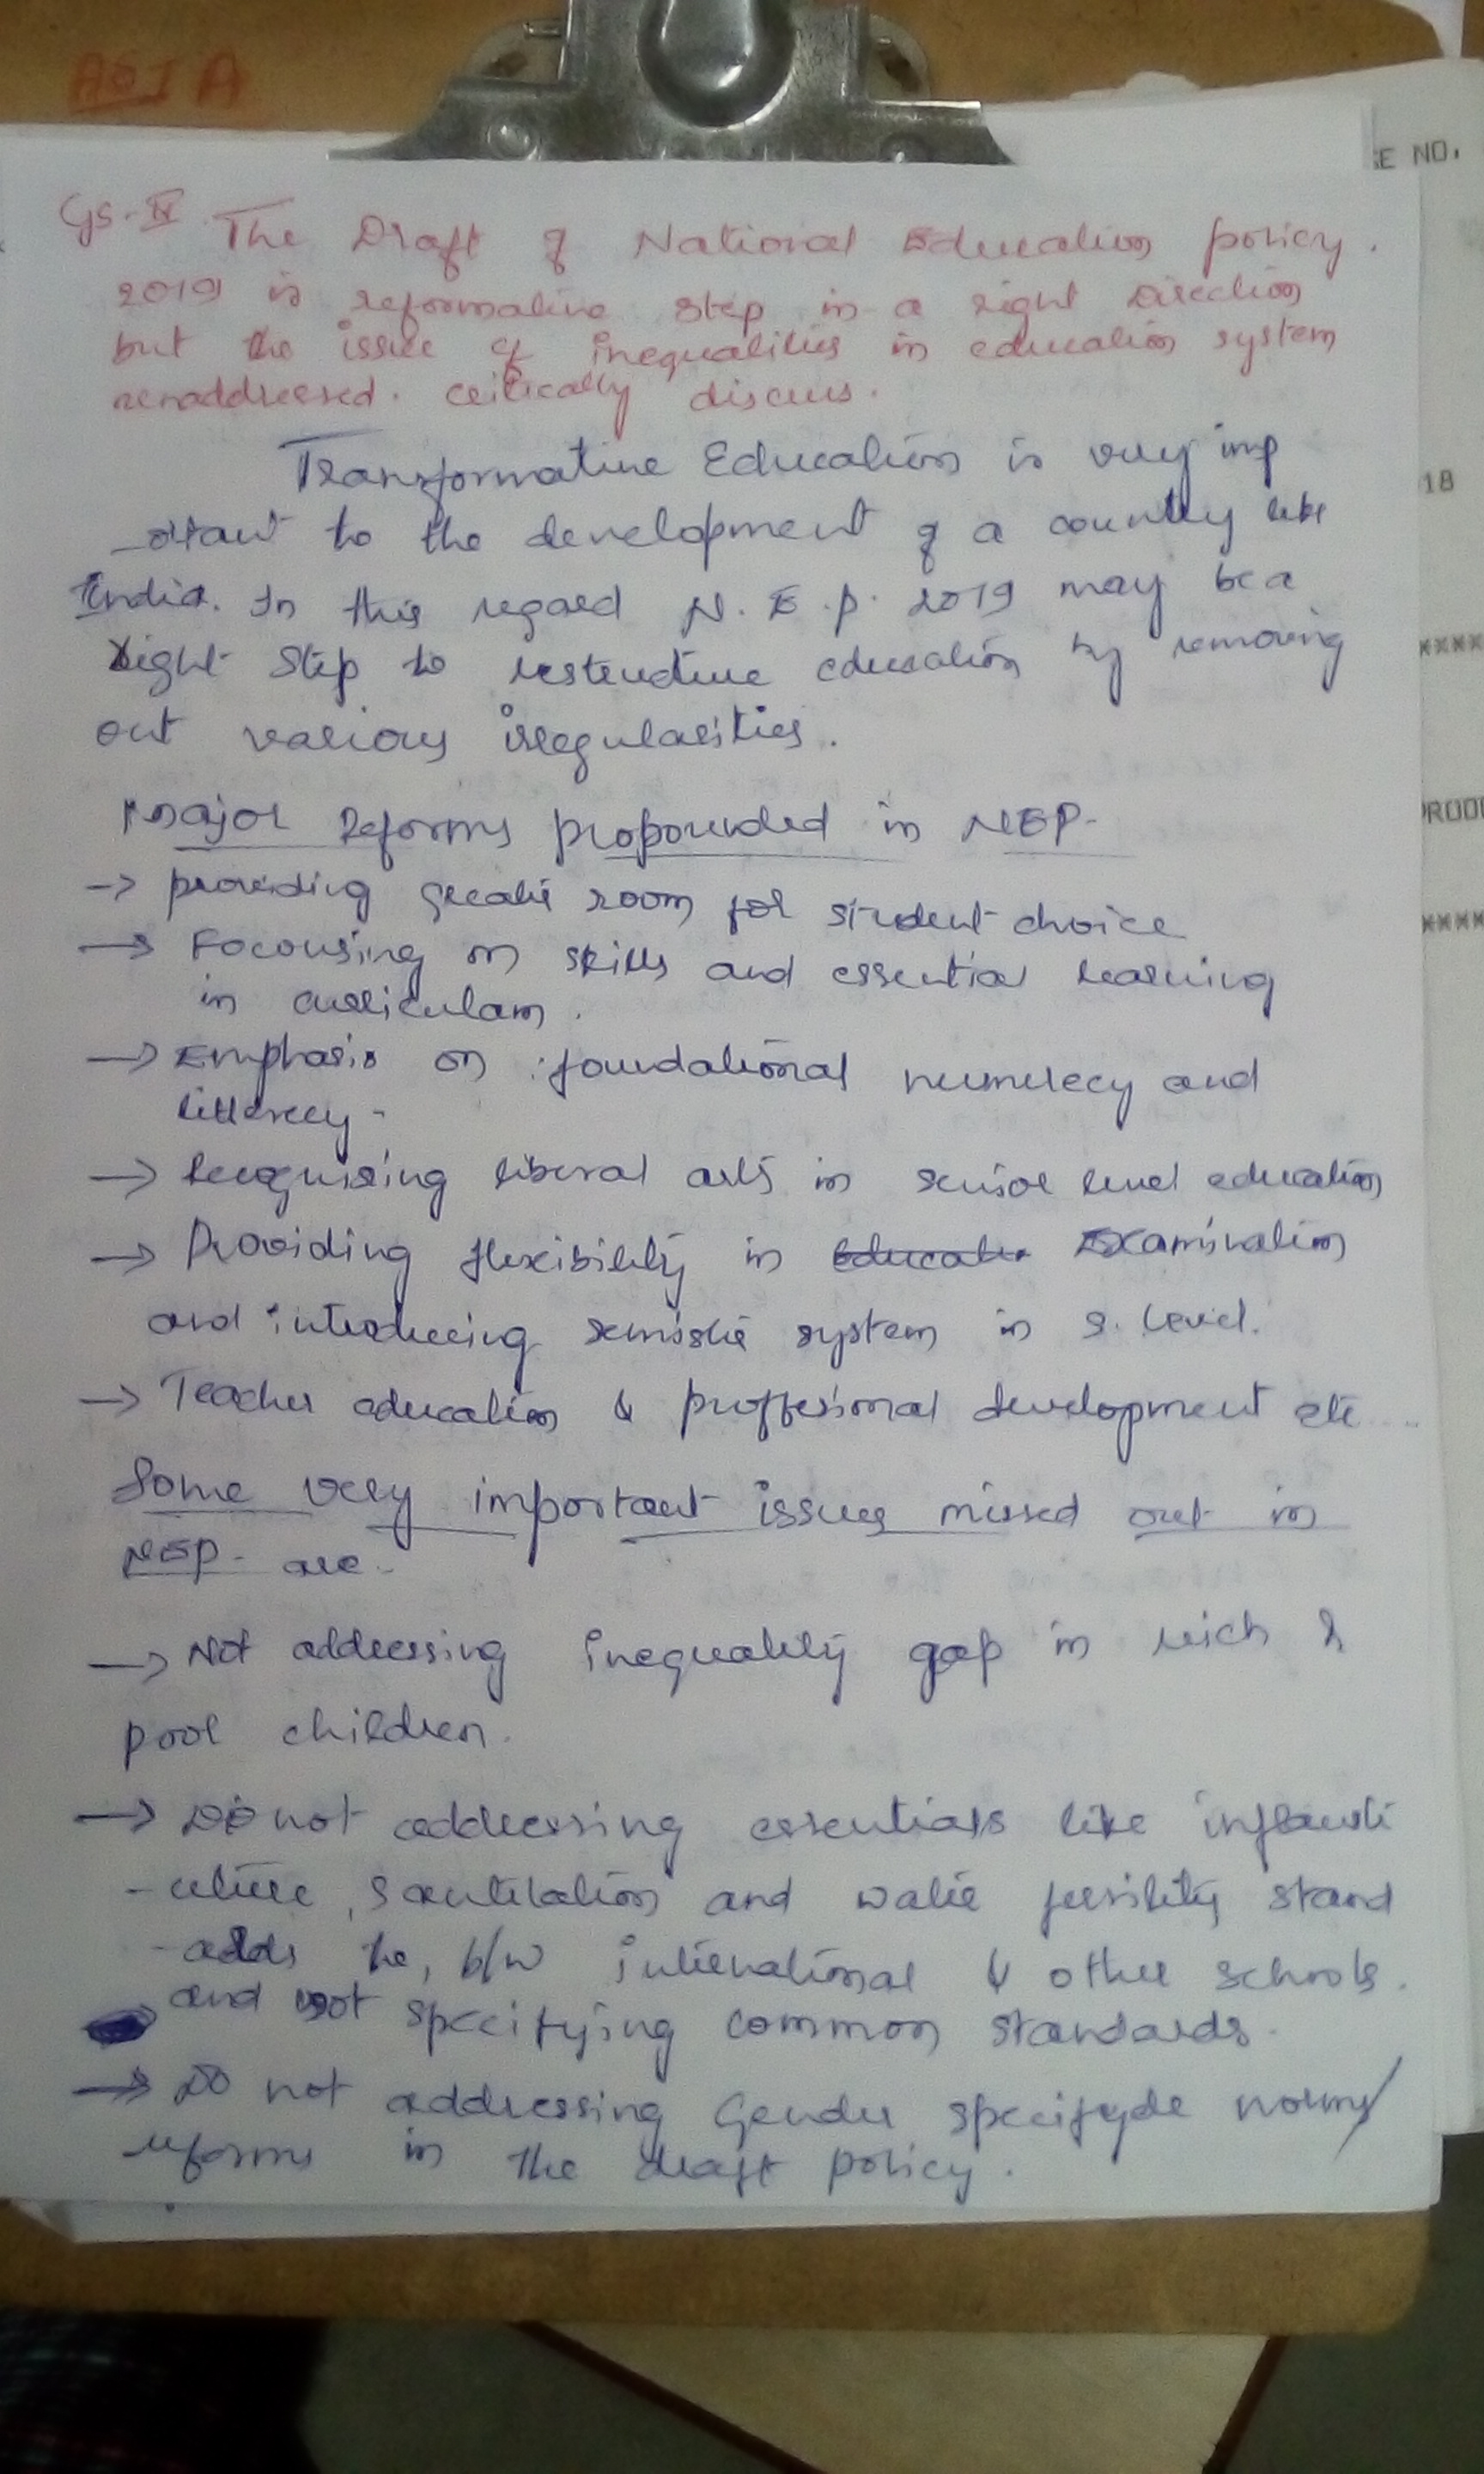 GS-II. The Draft of National Education policy.
2019 is reformative step in a right Direction
but the issue of inequalities in education system
critically discuss.
Transformative Education is very imp
-ortant to the development of a country like
India. In this regard N.E.p. 2019 may be a
right step to education by removing
out various irregularities.
Major Reforms propounded in NEP-
-> providing greater room for student choice
-> Focousing on skills and essential learning
in curriculam.
-> Emphasis on foundational numerecy and
litterecy-
-> Recognising liberal arts in senior level education
-> Providing flexibility in Examination
and introducing semister system in s. level.
-> Teacher education & proffessional development etc..
Some very important issues missed out in
NEP- are-
-> Not addressing inequality gap in rich &
poor children.
-> Do not addressing essentials like infrastr
-ucture, and water stand
b/w international & other schools.
and not specifying common standards.
-> Do not addressing Gender norms/
reforms in the draft policy.
E NO.
18
xxxx
PRODU
xxxx